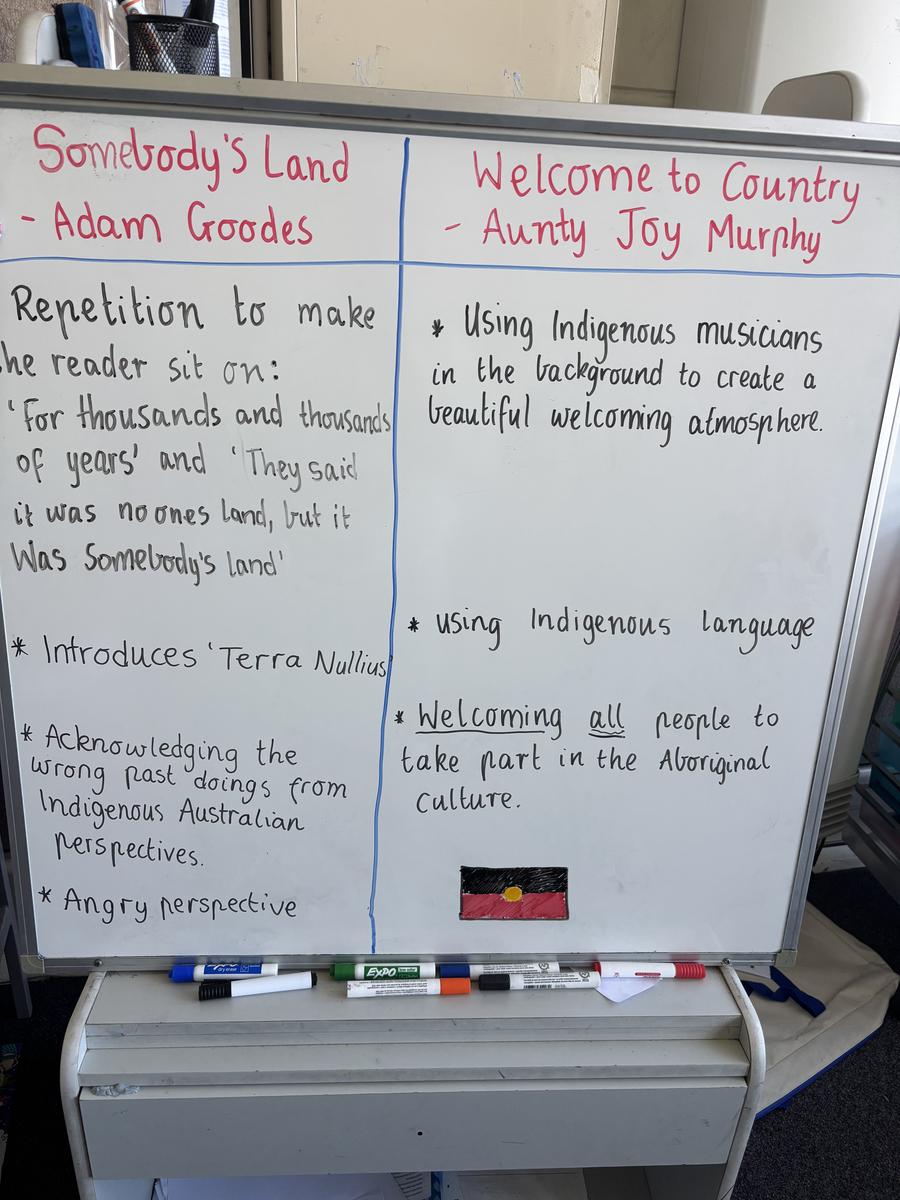 Somebody's Land
- Adam Goodes
Repetition to make
he reader sit on:
'For thousands and thousands
of years' and 'They said
it was no ones land, but it
Was Somebody's land'
* Introduces 'Terra Nullius'
* Acknowledging the
wrong past doings from
Indigenous Australian
perspectives.
* Angry perspective
Welcome to Country
- Aunty Joy Murphy
* Using Indigenous musicians
in the background to create a
beautiful welcoming atmosphere.
* using Indigenous language
* Welcoming all people to
take part in the Aboriginal
culture.
EXPO